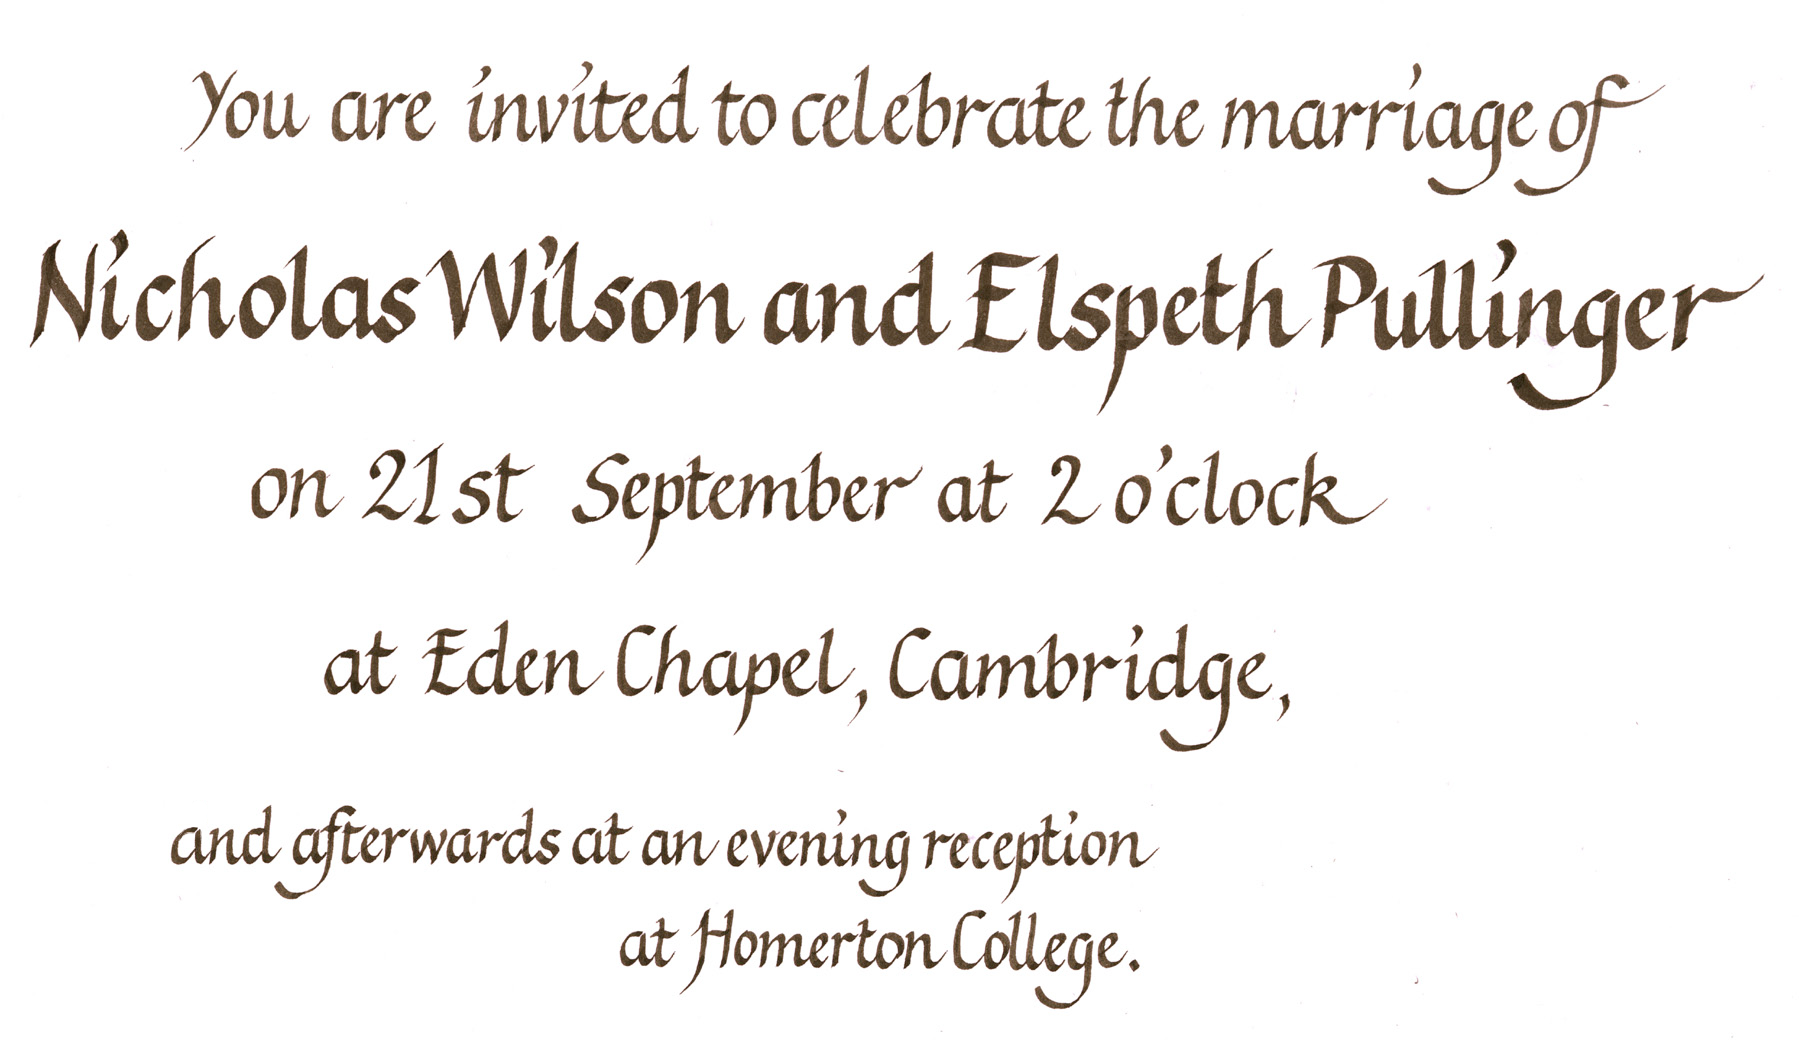 You are invited to celebrate the marriage of
Nicholas Wilson and Elspeth Pullinger
on 21st September at 2 o'clock
at Eden Chapel, Cambridge,
and afterwards at an evening reception
at Homerton College.